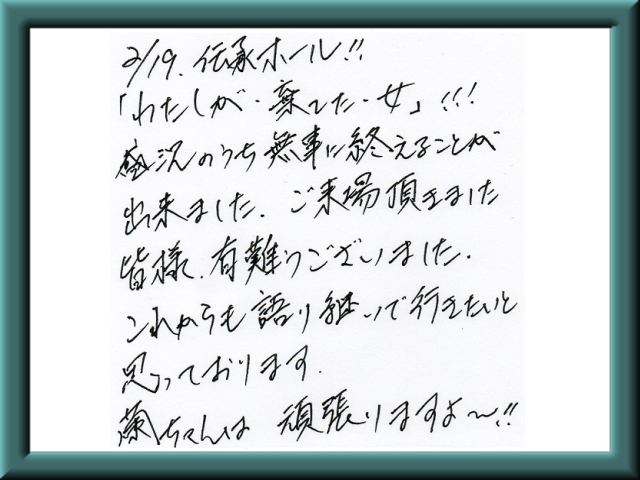 2/19. 伝承ホール!!
「わたしが・棄てた・女」!!!
盛況のうち無事に終えることが
出来ました. ご来場頂きました
皆様、有難うございました.
これからも語り継いで行きたいと
思っております.
蘭ちゃんは 頑張りますよ〜!!